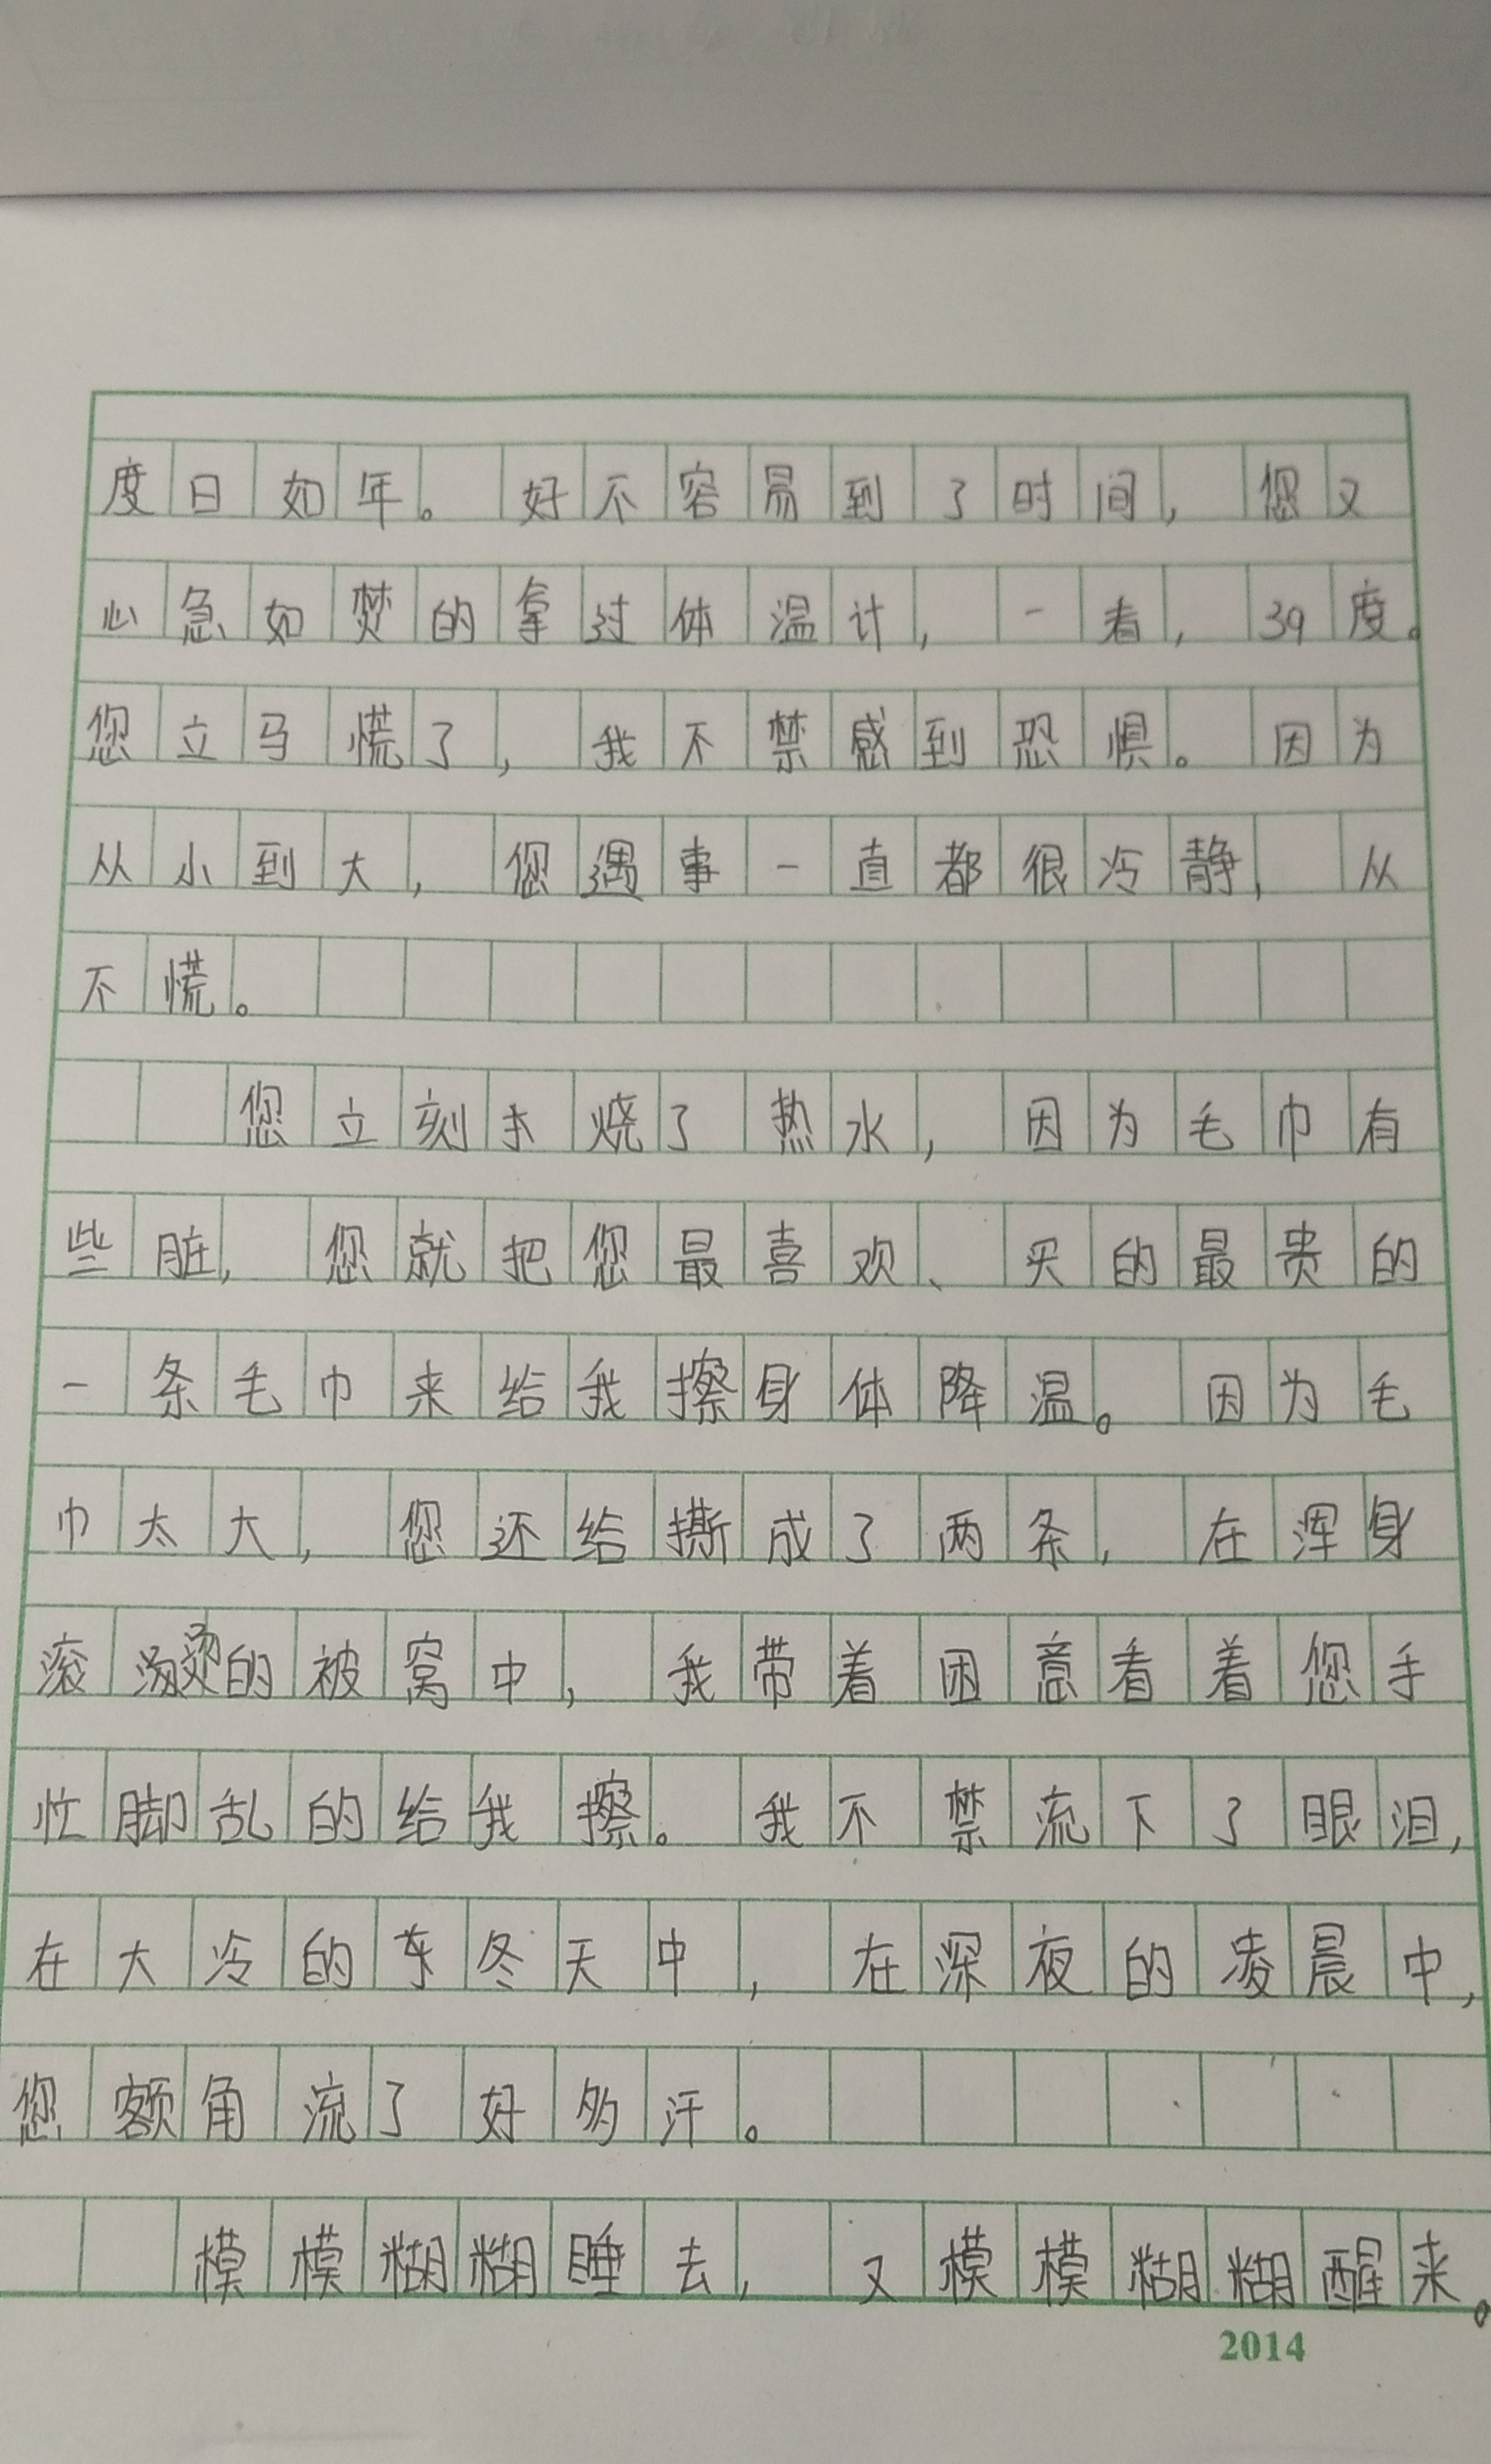 度日如年。好不容易到了时间,您又
心急如焚的拿过体温计,一看,39度。
您立马慌了,我不禁感到恐惧。因为
从小到大,您遇事一直都很冷静,从
不慌。
您立刻烧了热水,因为毛巾有
些脏,您就把您最喜欢、买的最贵的
一条毛巾来给我擦身体降温。因为毛
巾太大,您还给撕成了两条,在浑身
滚烫的被窝中,我带着困意看着您手
忙脚乱的给我擦。我不禁流下了眼泪,
在大冷的冬天中,在深夜的凌晨中,
您额角流了好多汗。
模模糊糊睡去,又模模糊糊醒来。
2014